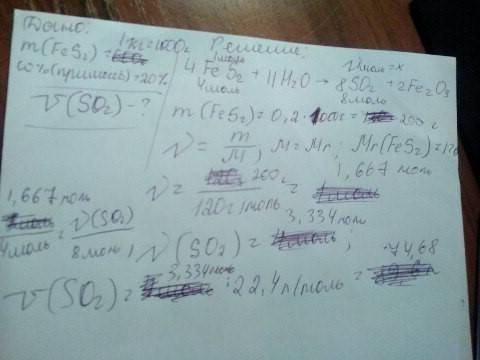 Дано:
m(FeS₂) = 1кг = 1000г
w%(примись) = 20%
V(SO₂) - ?
Решение:
4FeS₂ + 11H₂O → 8SO₂ + 2Fe₂O₃
4моль 8моль
m(FeS₂) = 0,2 · 1000г = 200г
ν = m/M, M = Mr; Mr(FeS₂) = 120
ν = 200г / 120г/моль = 1,667 моль
1,667 моль / 4моль = ν(SO₂) / 8моль, ν(SO₂) = 3,334моль;
V(SO₂) = 3,334моль · 22,4л/моль = 74,68